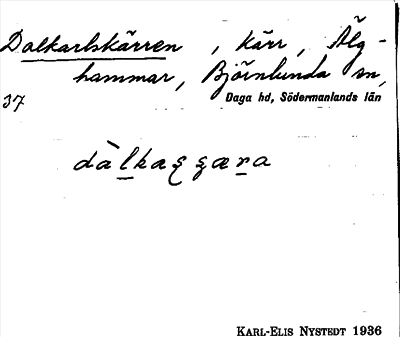 Dalkarlskärren, kärr, Älg-
hammar, Björnlunda sn,
37 Daga hd, Södermanlands län
dàlkaʂʂæra
KARL-ELIS NYSTEDT 1936